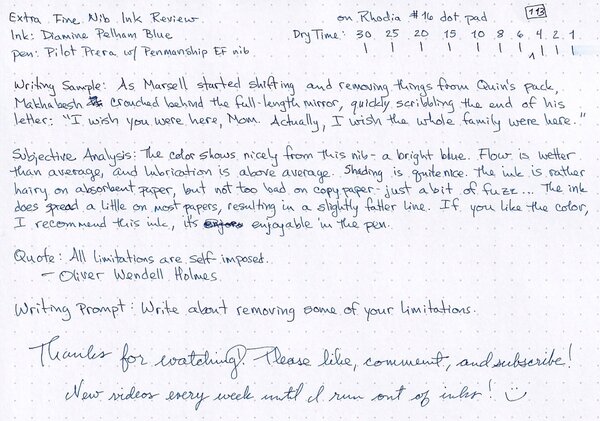 Extra Fine Nib Ink Review. on Rhodia #16 dot pad. 113
Ink: Diamine Pelham Blue Dry Time: 30 25 20 15 10 8 6 4 2 1
Pen: Pilot Prera w/ Penmanship EF nib
Writing Sample: As Marsell started shifting and removing things from Quin's pack,
Makhabesh crouched behind the full-length mirror, quickly scribbling the end of his
letter: "I wish you were here, Mom. Actually, I wish the whole family were here."
Subjective Analysis: The color shows nicely from this nib - a bright blue. Flow is wetter
than average, and lubrication is above average. Shading is quite nice. The ink is rather
hairy on absorbent paper, but not too bad on copy paper - just a bit of fuzz... The ink
does spread a little on most papers, resulting in a slightly fatter line. If you like the color,
I recommend this ink, it's enjoyable in the pen.
Quote: All limitations are self imposed.
- Oliver Wendell Holmes
Writing Prompt: Write about removing some of your limitations.
Thanks for watching! Please like, comment, and subscribe!
New videos every week until I run out of inks!